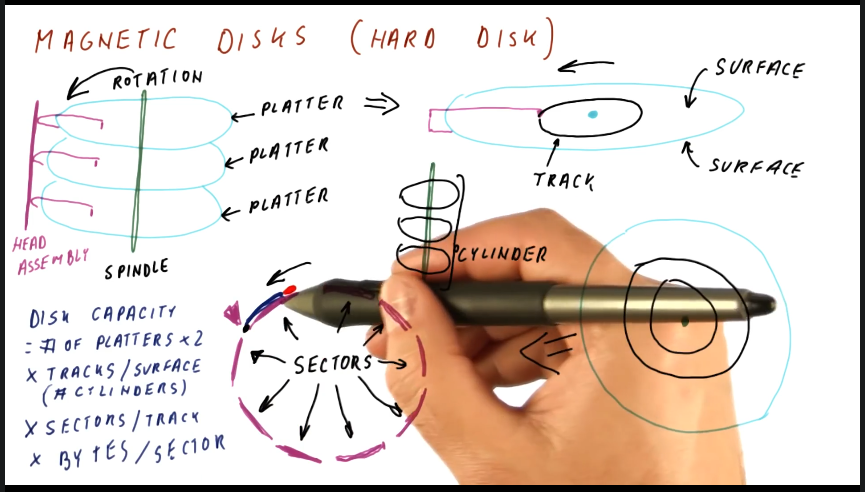 MAGNETIC DISKS (HARD DISK)
ROTATION
PLATTER
PLATTER
PLATTER
HEAD
ASSEMBLY
SPINDLE
SURFACE
SURFACE
TRACK
CYLINDER
DISK CAPACITY
= # OF PLATTERS x 2
x TRACKS/SURFACE
(# CYLINDERS)
x SECTORS/TRACK
x BYTES/SECTOR
SECTORS